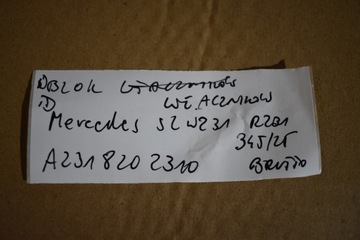 BLOK WŁĄCZNIKÓW
WŁĄCZNIKÓW
Mercedes SL W231 R231
345/25
A231 820 2310 BRUTTO